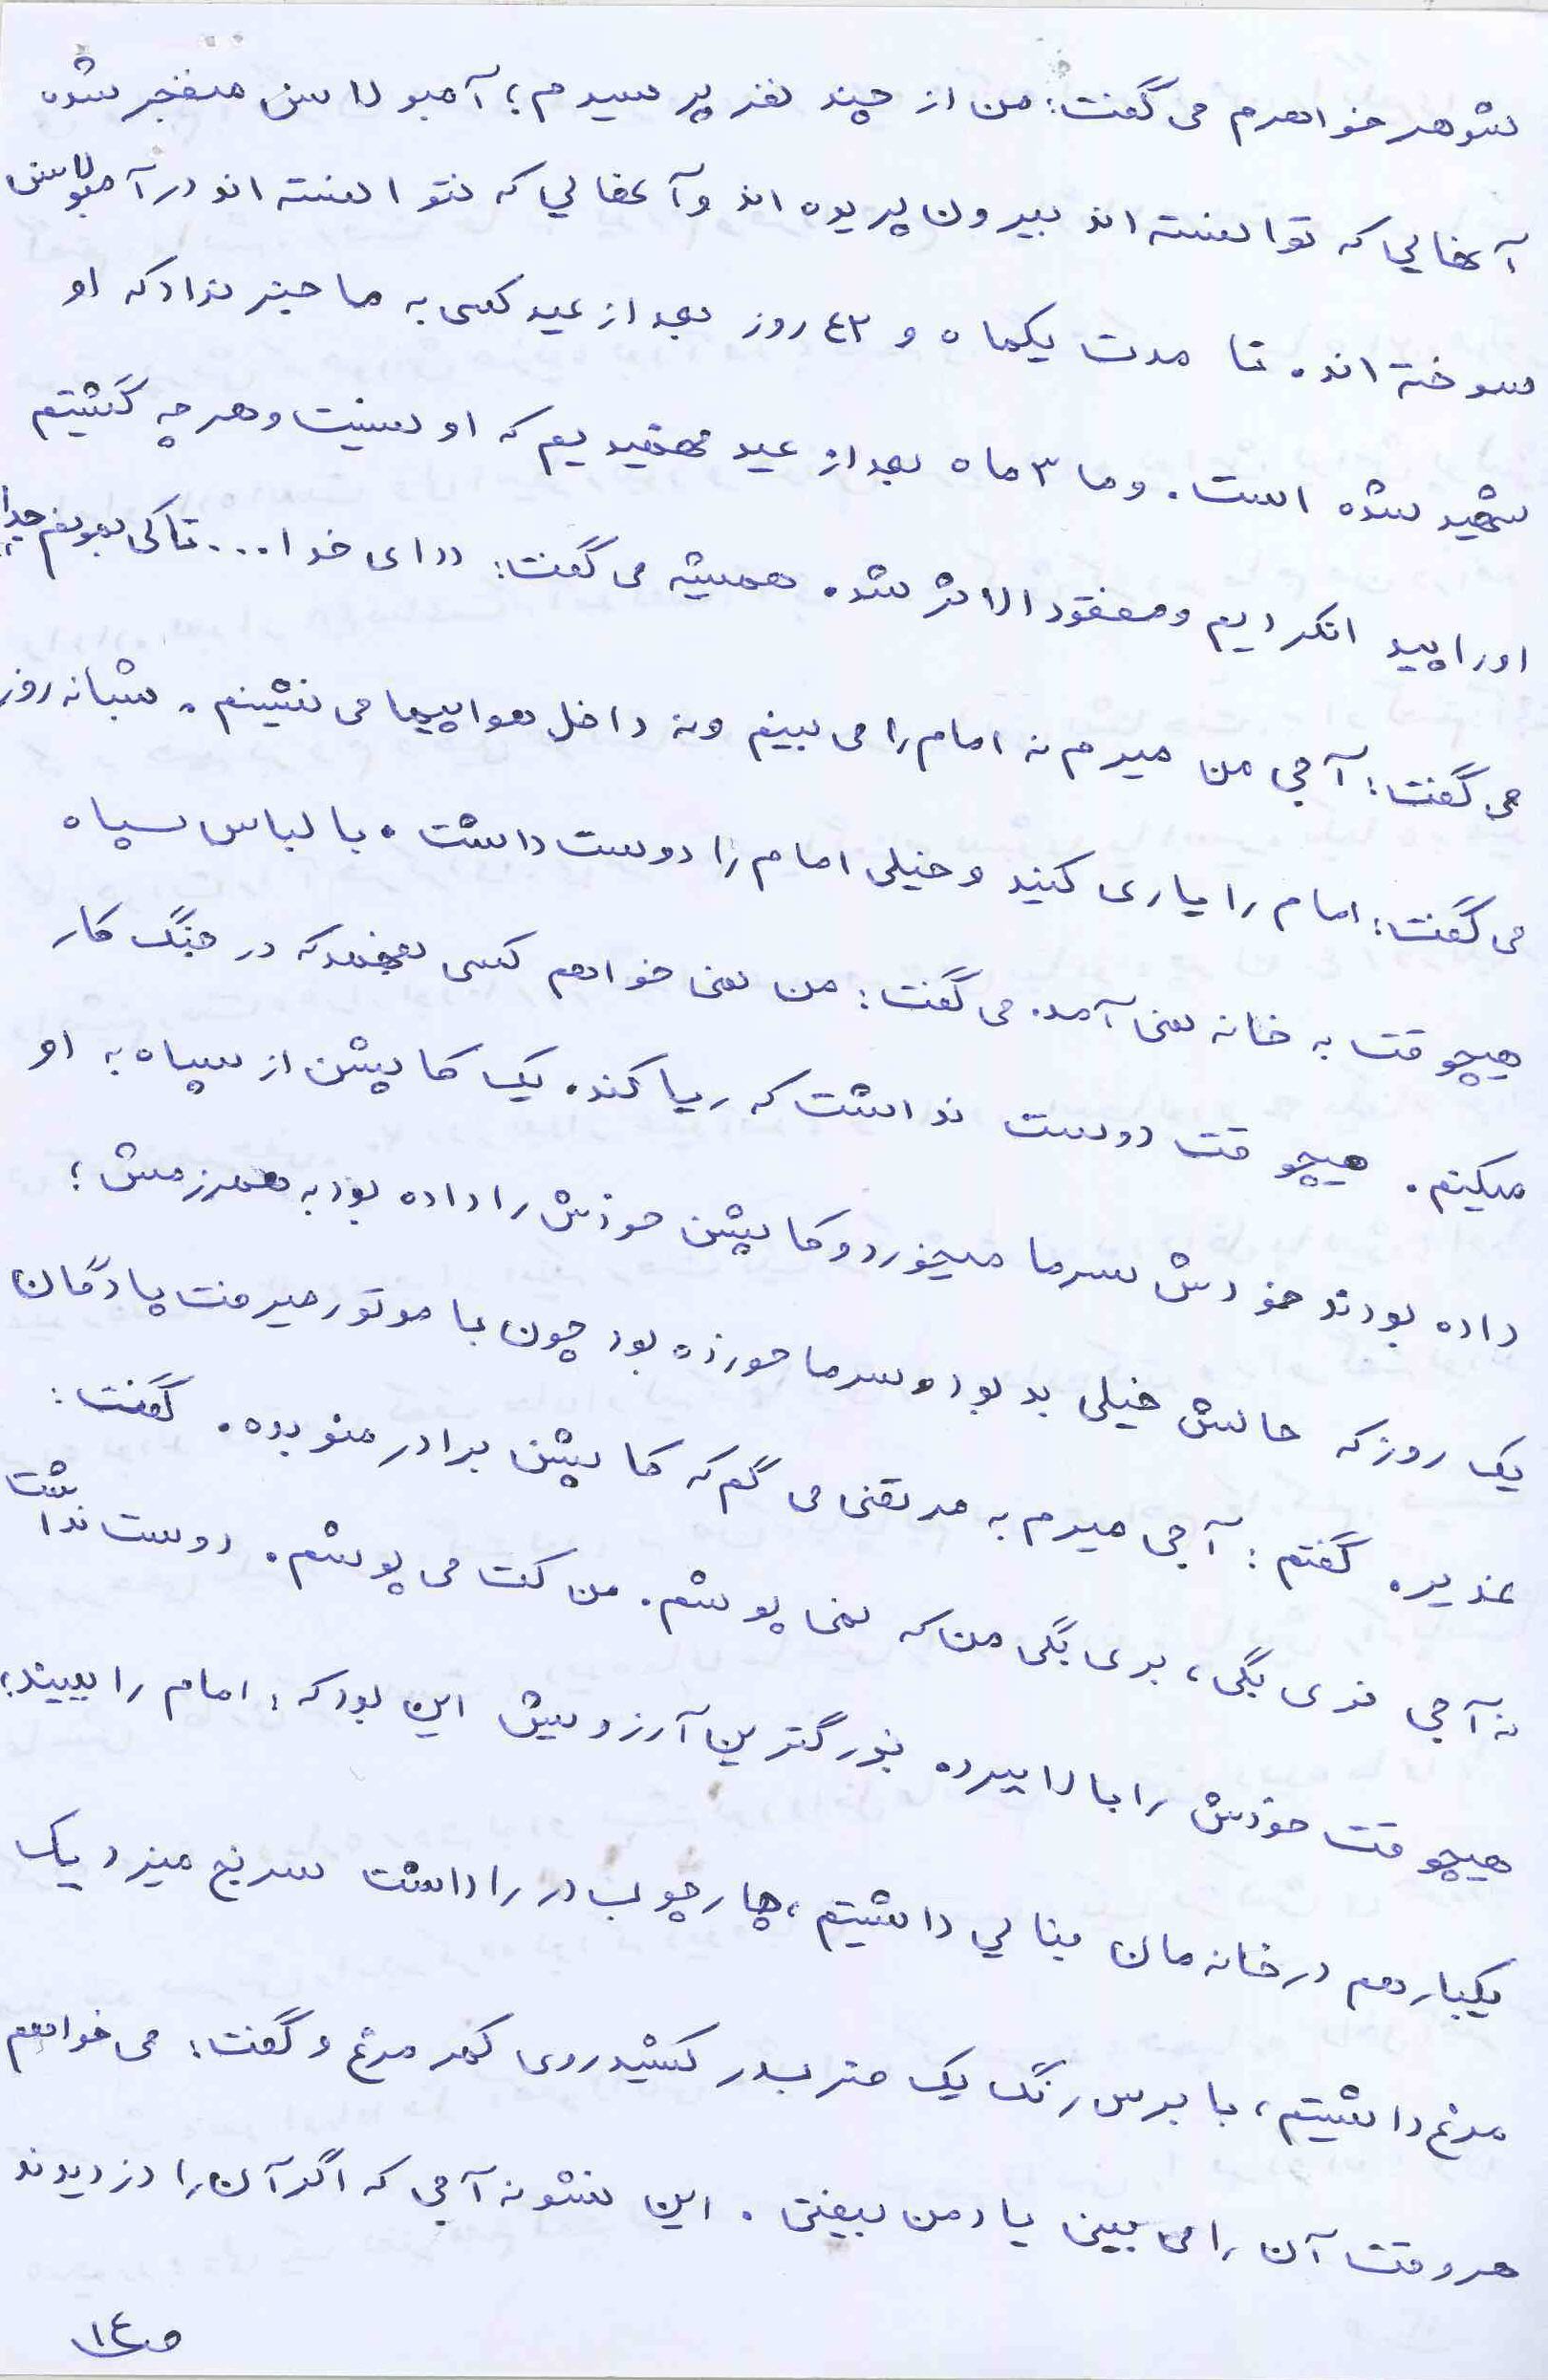 شوهر خواهرم می گفت: من از چند نفر پرسیدم؛ آمبولاسن منفجر شده
آنهایی که توانسته اند بیرون پریده اند و آنهایی که نتوانسته اند در آمبولاسن
سوخته اند. تا مدت یکماه و ۲۴ روز بعد از عید کسی به ما خبر نداد که او
شهید شده است. و ما ۳ ماه بعد از عید فهمیدیم که او نیست و هر چه گشتیم
او را پیدا نکردیم و مفقودالاثر شد. همیشه می گفت: ((ای خدا... تا کی بمونم
می گفت: آجی من میرم نه امام را می بینم و نه داخل هواپیما می نشینم. شبانه روز
می گفت: امام را یاری کنید و خیلی امام را دوست داشت. با لباس سپاه
هیچوقت به خانه نمی آمد. می گفت: من نمی خواهم کسی بفهمد که در جنگ کار
میکنم. هیچوقت دوست نداشت که ریا کند. یک کاپشن از سپاه به او
داده بودند خودش سرما میخورد و کاپشن خودش را داده بود به همرزمش؛
یک روز که حالش خیلی بد بود و سرما خورده بود چون با موتور میرفت پادگان
غدیر. گفتم: آجی میرم به مرتضی می گم که کاپشن برادر منو بده. گفت:
نه آجی نری بگی، بری بگی من که نمی پوشم. من کت می پوشم. دوست نداشت
هیچوقت خودش را بالا ببرد. بزرگترین آرزویش این بود که: امام را ببیند؛
یکبار هم در خانه مان بنایی داشتیم، چارچوب در را داشت سرنج میزد یک
مرغ داشتیم، با برس رنگ یک ضربدر کشید روی کمر مرغ و گفت: می خواهم
هر وقت آن را می بینی یاد من بیفتی. این نشونه آجی که اگر آن را دزدیدند
ص۱۴